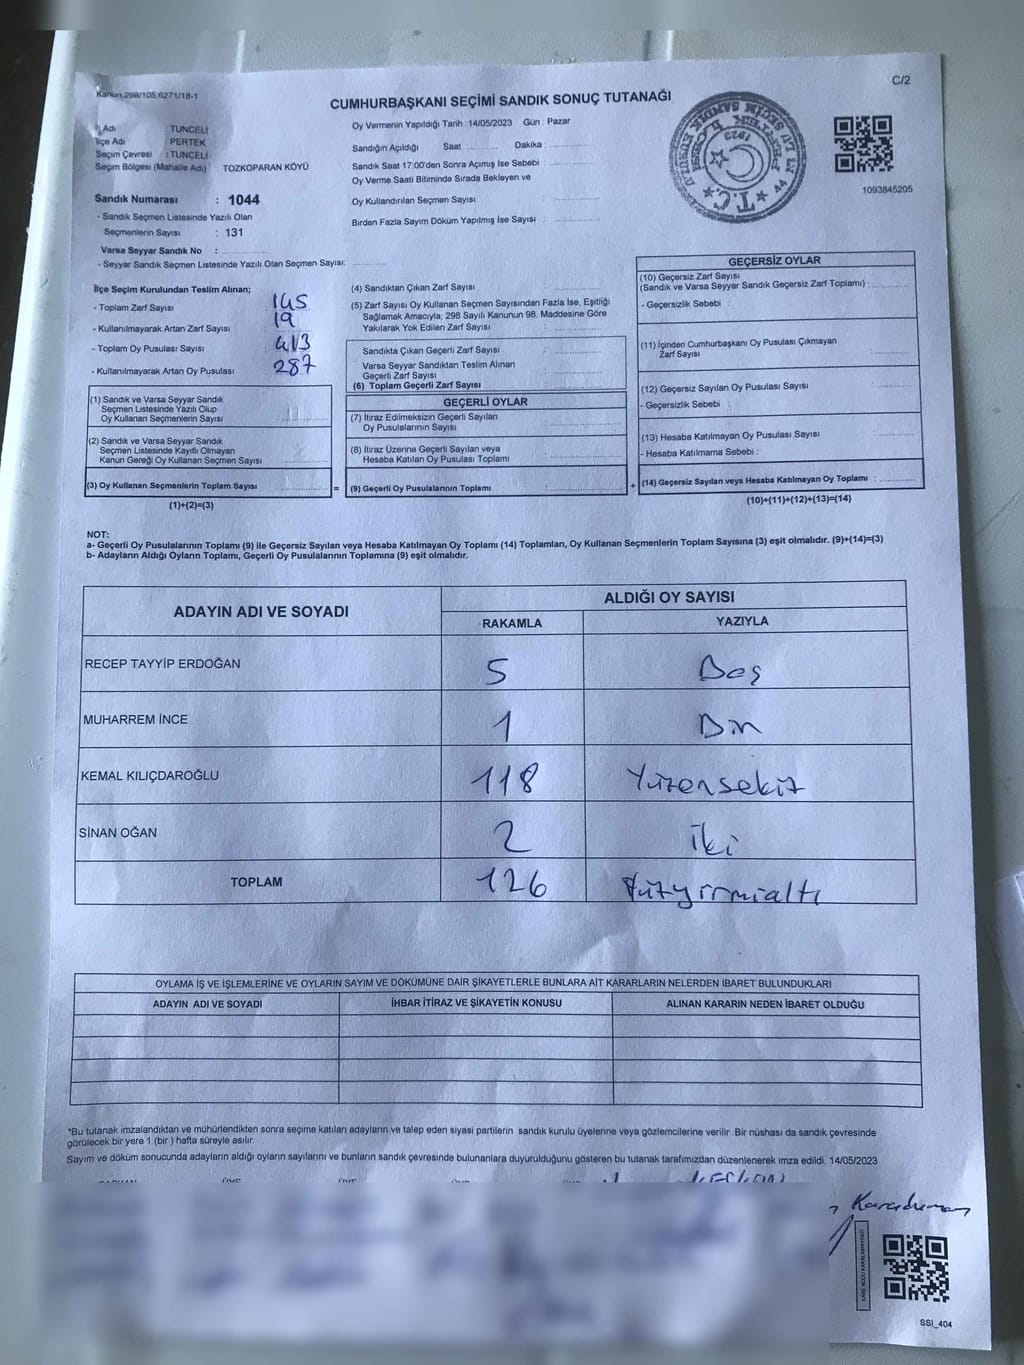 C/2
Kanun,298/105,6271/18-1
CUMHURBAŞKANI SEÇİMİ SANDIK SONUÇ TUTANAĞI
İl Adı TUNCELİ
İlçe Adı PERTEK
Seçim Çevresi : TUNCELİ
Seçim Bölgesi (Mahalle Adı) : TOZKOPARAN KÖYÜ
Sandık Numarası : 1044
- Sandık Seçmen Listesinde Yazılı Olan
Seçmenlerin Sayısı : 131
Varsa Seyyar Sandık No :
- Seyyar Sandık Seçmen Listesinde Yazılı Olan Seçmen Sayısı:
Oy Vermenin Yapıldığı Tarih :14/05/2023 Gün : Pazar
Sandığın Açıldığı Saat Dakika :
Sandık Saat 17:00'den Sonra Açımış İse Sebebi :
Oy Verme Saati Bitiminde Sırada Bekleyen ve
Oy Kullandırılan Seçmen Sayısı :
Birden Fazla Sayım Döküm Yapılmış İse Sayısı :
T.C.
1093845205
İlçe Seçim Kurulundan Teslim Alınan;
- Toplam Zarf Sayısı 145
- Kullanılmayarak Artan Zarf Sayısı 19
- Toplam Oy Pusulası Sayısı 413
- Kullanılmayarak Artan Oy Pusulası 287
(1) Sandık ve Varsa Seyyar Sandık
Seçmen Listesinde Yazılı Olup
Oy Kullanan Seçmenlerin Sayısı
(2) Sandık ve Varsa Seyyar Sandık
Seçmen Listesinde Kayıtlı Olmayan
Kanun Gereği Oy Kullanan Seçmen Sayısı
(3) Oy Kullanan Seçmenlerin Toplam Sayısı =
(1)+(2)=(3)
(4) Sandıktan Çıkan Zarf Sayısı :
(5) Zarf Sayısı Oy Kullanan Seçmen Sayısından Fazla İse, Eşitliği
Sağlamak Amacıyla, 298 Sayılı Kanunun 98. Maddesine Göre
Yakılarak Yok Edilen Zarf Sayısı :
Sandıkta Çıkan Geçerli Zarf Sayısı :
Varsa Seyyar Sandıktan Teslim Alınan
Geçerli Zarf Sayısı :
(6) Toplam Geçerli Zarf Sayısı :
GEÇERLİ OYLAR
(7) İtiraz Edilmeksizin Geçerli Sayılan
Oy Pusulalarının Sayısı :
(8) İtiraz Üzerine Geçerli Sayılan veya
Hesaba Katılan Oy Pusulası Toplamı :
(9) Geçerli Oy Pusulalarının Toplamı : +
GEÇERSİZ OYLAR
(10) Geçersiz Zarf Sayısı
(Sandık ve Varsa Seyyar Sandık Geçersiz Zarf Toplamı) :
- Geçersizlik Sebebi :
(11) İçinden Cumhurbaşkanı Oy Pusulası Çıkmayan
Zarf Sayısı :
(12) Geçersiz Sayılan Oy Pusulası Sayısı :
- Geçersizlik Sebebi :
(13) Hesaba Katılmayan Oy Pusulası Sayısı :
- Hesaba Katılmama Sebebi :
(14) Geçersiz Sayılan veya Hesaba Katılmayan Oy Toplamı :
(10)+(11)+(12)+(13)=(14)
NOT:
a- Geçerli Oy Pusulalarının Toplamı (9) ile Geçersiz Sayılan veya Hesaba Katılmayan Oy Toplamı (14) Toplamları, Oy Kullanan Seçmenlerin Toplam Sayısına (3) eşit olmalıdır. (9)+(14)=(3)
b- Adayların Aldığı Oyların Toplamı, Geçerli Oy Pusulalarının Toplamına (9) eşit olmalıdır.
ADAYIN ADI VE SOYADI ALDIĞI OY SAYISI
RAKAMLA YAZIYLA
RECEP TAYYİP ERDOĞAN 5 Beş
MUHARREM İNCE 1 Bir
KEMAL KILIÇDAROĞLU 118 Yüzonsekiz
SİNAN OĞAN 2 İki
TOPLAM 126 Yüzyirmialtı
OYLAMA İŞ VE İŞLEMLERİNE VE OYLARIN SAYIM VE DÖKÜMÜNE DAİR ŞİKAYETLERLE BUNLARA AİT KARARLARIN NELERDEN İBARET BULUNDUKLARI
ADAYIN ADI VE SOYADI İHBAR İTİRAZ VE ŞİKAYETİN KONUSU ALINAN KARARIN NEDEN İBARET OLDUĞU
*Bu tutanak imzalandıktan ve mühürlendikten sonra seçime katılan adayların ve talep eden siyasi partilerin sandık kurulu üyelerine veya gözlemcilerine verilir. Bir nüshası da sandık çevresinde
görülecek bir yere 1 (bir ) hafta süreyle asılır.
Sayım ve döküm sonucunda adayların aldığı oyların sayılarını ve bunların sandık çevresinde bulunanlara duyurulduğunu gösteren bu tutanak tarafımızdan düzenlenerek imza edildi. 14/05/2023
Karaduman
KARE KODU KARALAMAYINIZ!
SSI_404